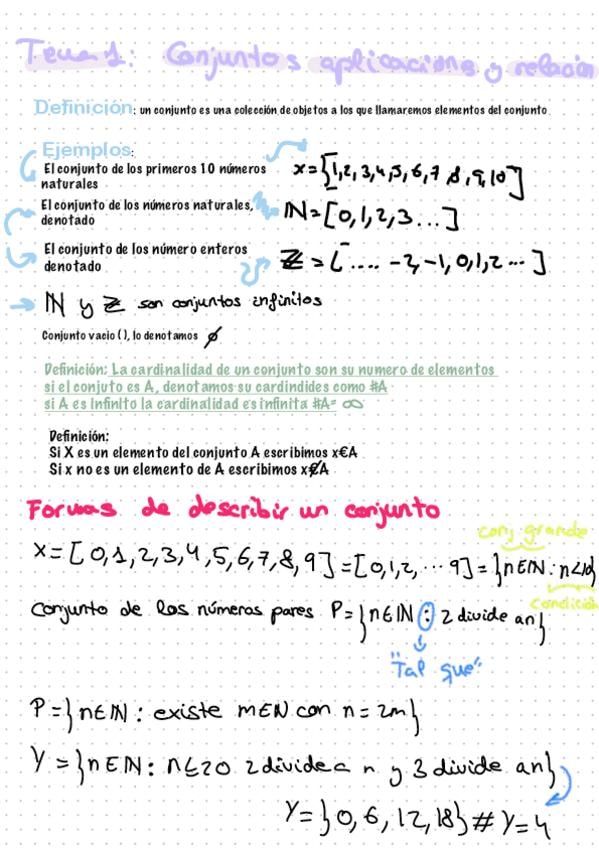 Tema 1: Conjuntos aplicaciones y relación
Definición: un conjunto es una colección de objetos a los que llamaremos elementos del conjunto
Ejemplos:
El conjunto de los primeros 10 números
naturales
x={1,2,3,4,5,6,7,8,9,10]
El conjunto de los números naturales,
denotado
ℕ=[0,1,2,3...]
El conjunto de los número enteros
denotado
ℤ=[....-2,-1,0,1,2...]
→ ℕ y ℤ son conjuntos infinitos
Conjunto vacio ( ), lo denotamos ∅
Definición: La cardinalidad de un conjunto son su numero de elementos
si el conjuto es A, denotamos su cardindides como #A
si A es Infinito la cardinalidad es infinita #A= ∞
Definición:
Si X es un elemento del conjunto A escribimos x€A
Si x no es un elemento de A escribimos x∉A
Formas de describir un conjunto
conj grande
X=[0,1,2,3,4,5,6,7,8,9]=[0,1,2,...9]={n∈ℕ:n<10}
condición
Conjunto de los números pares P={n∈ℕ : 2 divide a n}
"Tal que"
P={n∈ℕ: existe m∈ℕ con n=2m}
Y={n∈ℕ: n≤20 2 divide a n y 3 divide a n}
Y={0,6,12,18} #Y=4